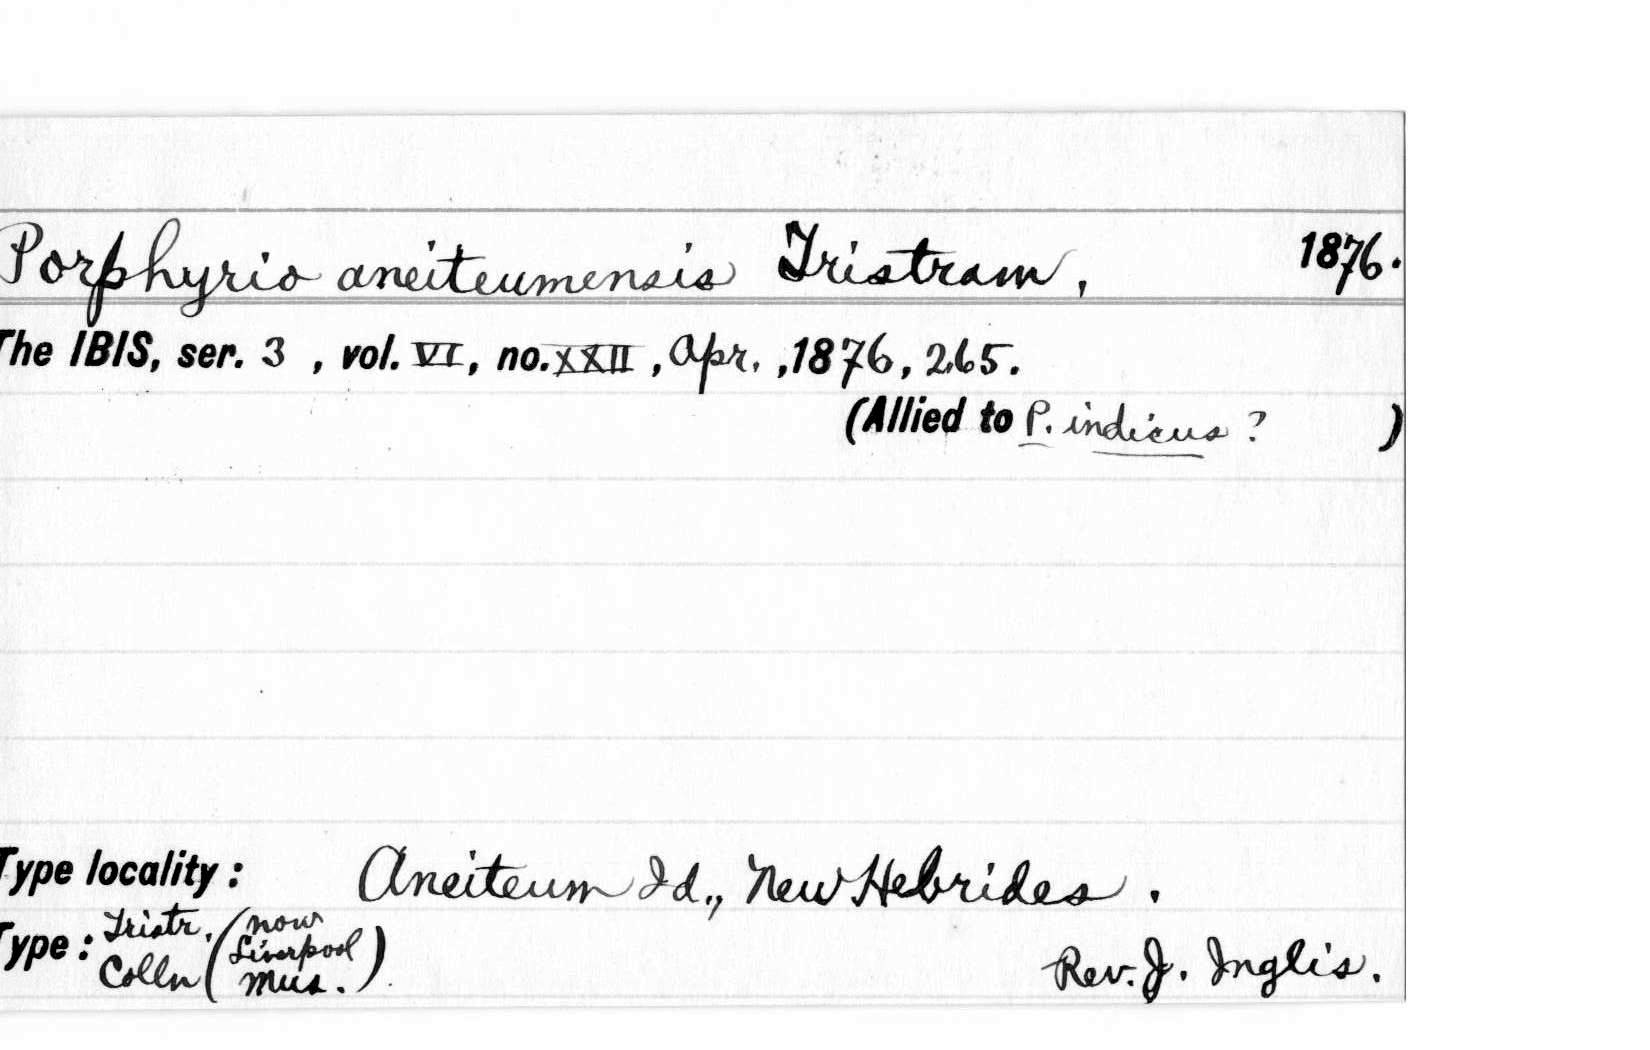 Porphyrio aneiteumensis Tristram, 1876.
The IBIS, ser. 3 , vol. VI, no. XXII , Apr. ,1876, 265.
(Allied to P. indicus ? )
Type locality : Aneiteum Id., New Hebrides .
Type : Tristr. Colln (now Liverpool Mus.) Rev. J. Inglis.